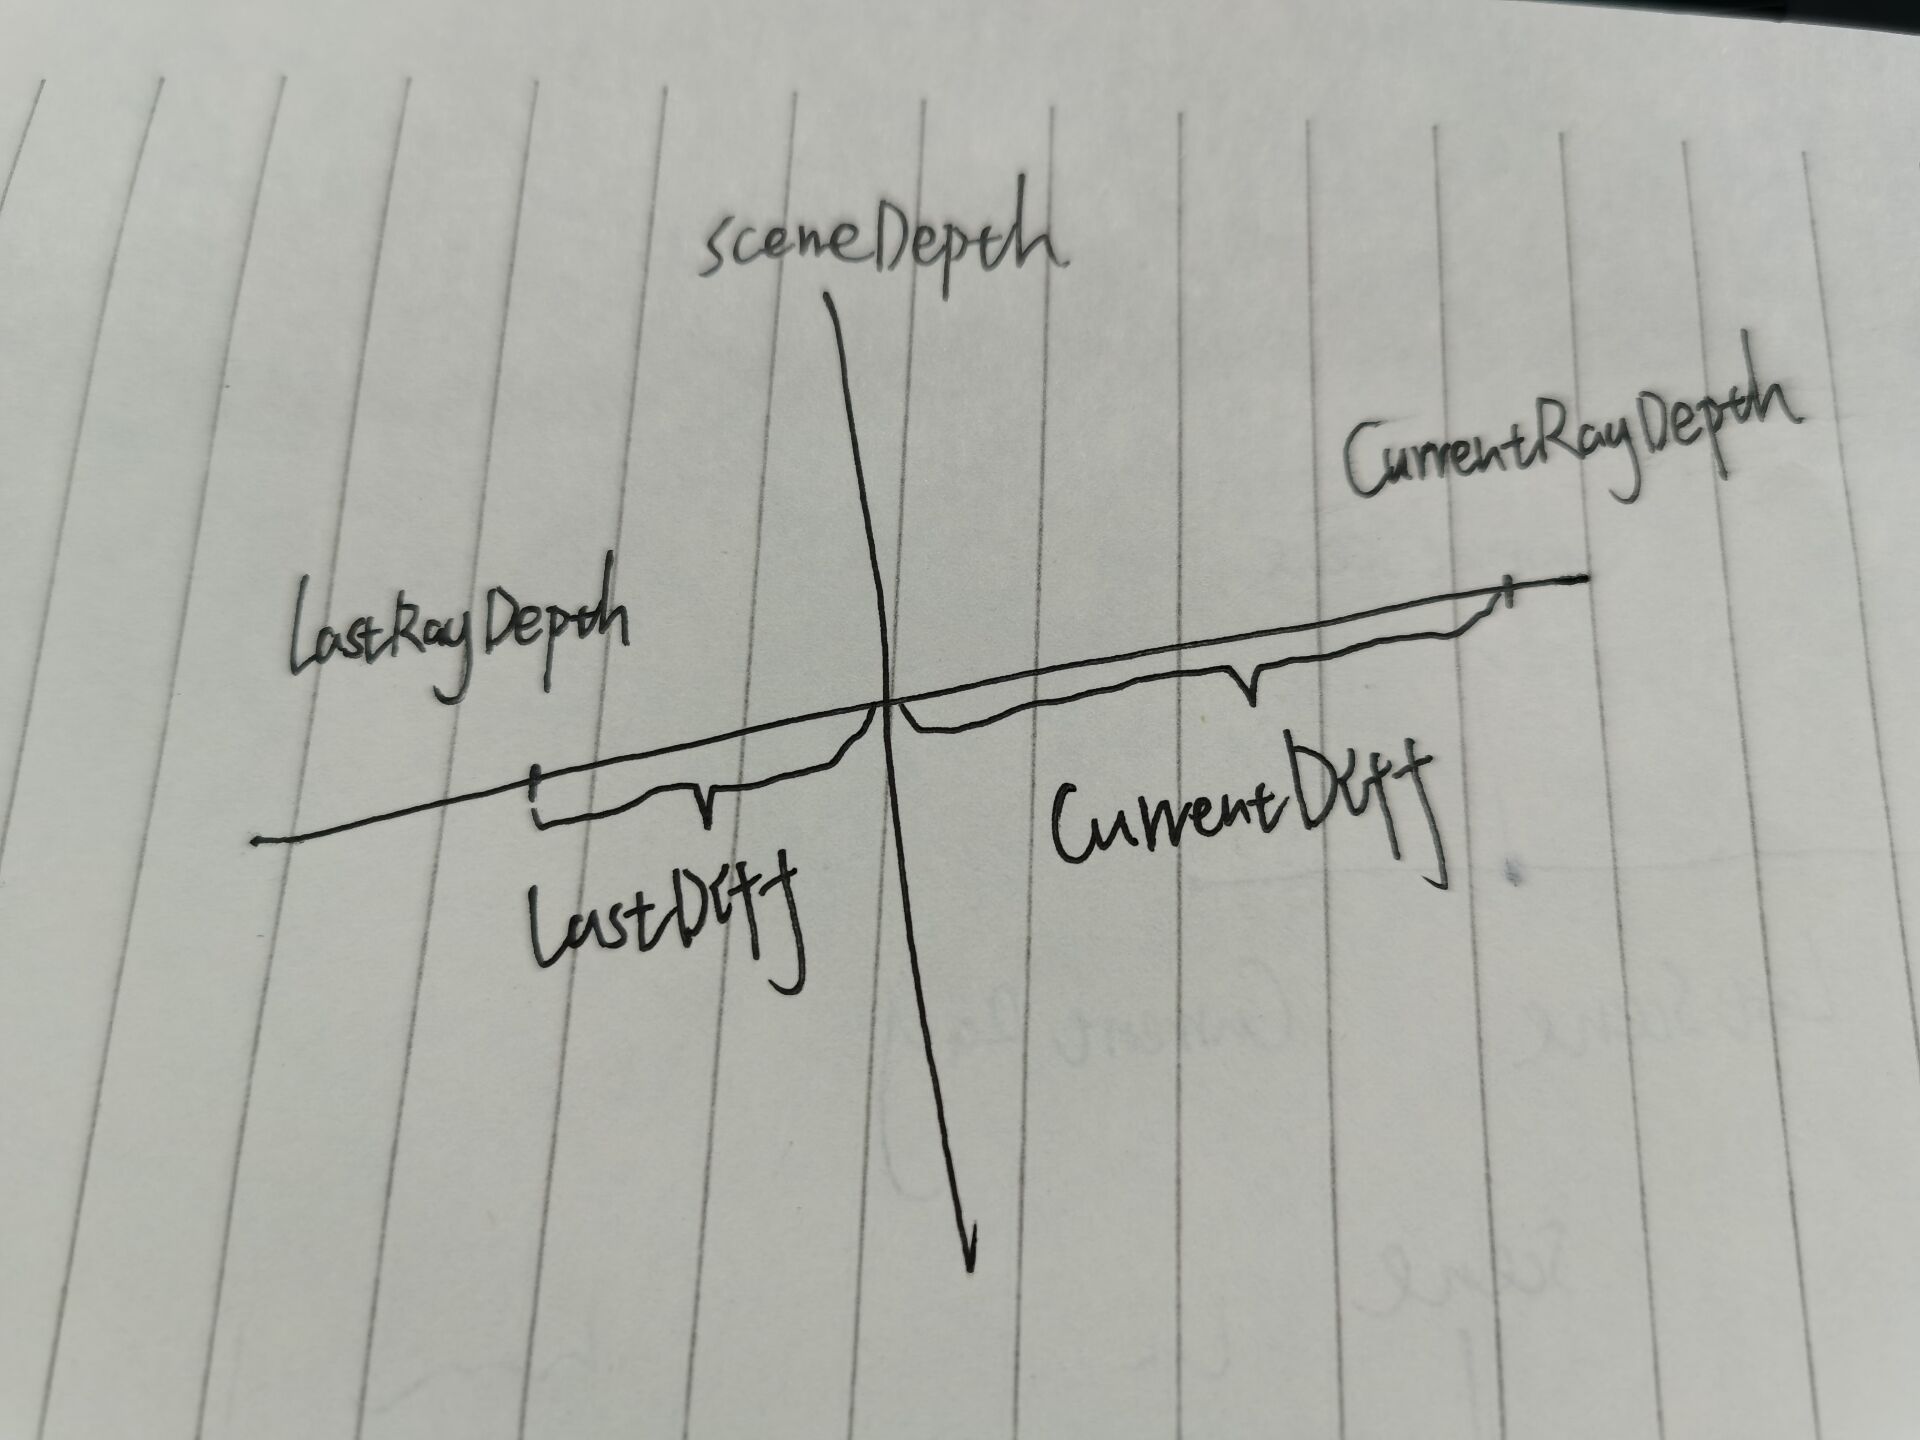 sceneDepth
CurrentRayDepth
LastRayDepth
CurrentDiff
LastDiff